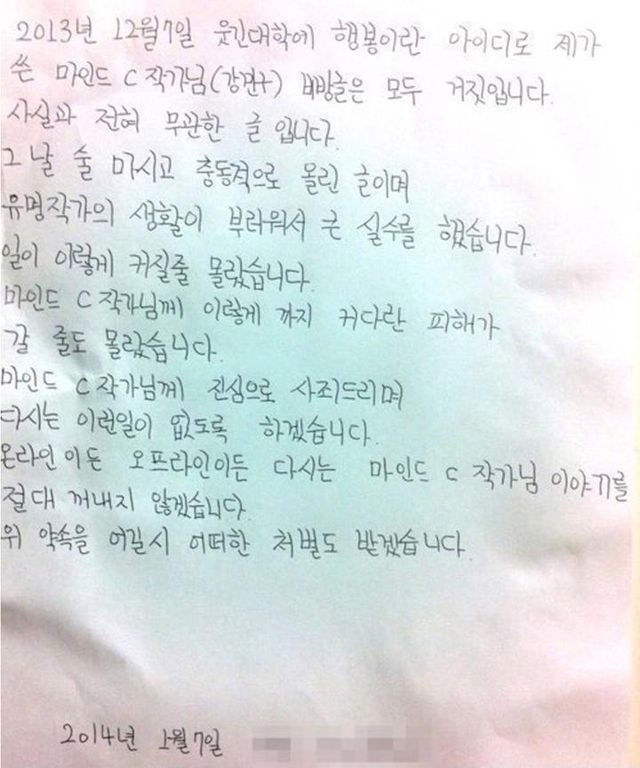 2013년 12월7일 웃긴대학에 행봉이란 아이디로 제가
쓴 마인드 C 작가님(강민구) 비방글은 모두 거짓입니다.
사실과 전혀 무관한 글 입니다.
그 날 술 마시고 충동적으로 올린 글이며
유명작가의 생활이 부러워서 큰 실수를 했습니다.
일이 이렇게 커질줄 몰랐습니다.
마인드 C 작가님께 이렇게 까지 커다란 피해가
갈 줄도 몰랐습니다.
마인드 C 작가님께 진심으로 사죄드리며
다시는 이런일이 없도록 하겠습니다.
온라인이든 오프라인이든 다시는 마인드 C 작가님 이야기를
절대 꺼내지 않겠습니다
위 약속을 어길시 어떠한 처벌도 받겠습니다.
2014년 1월 7일